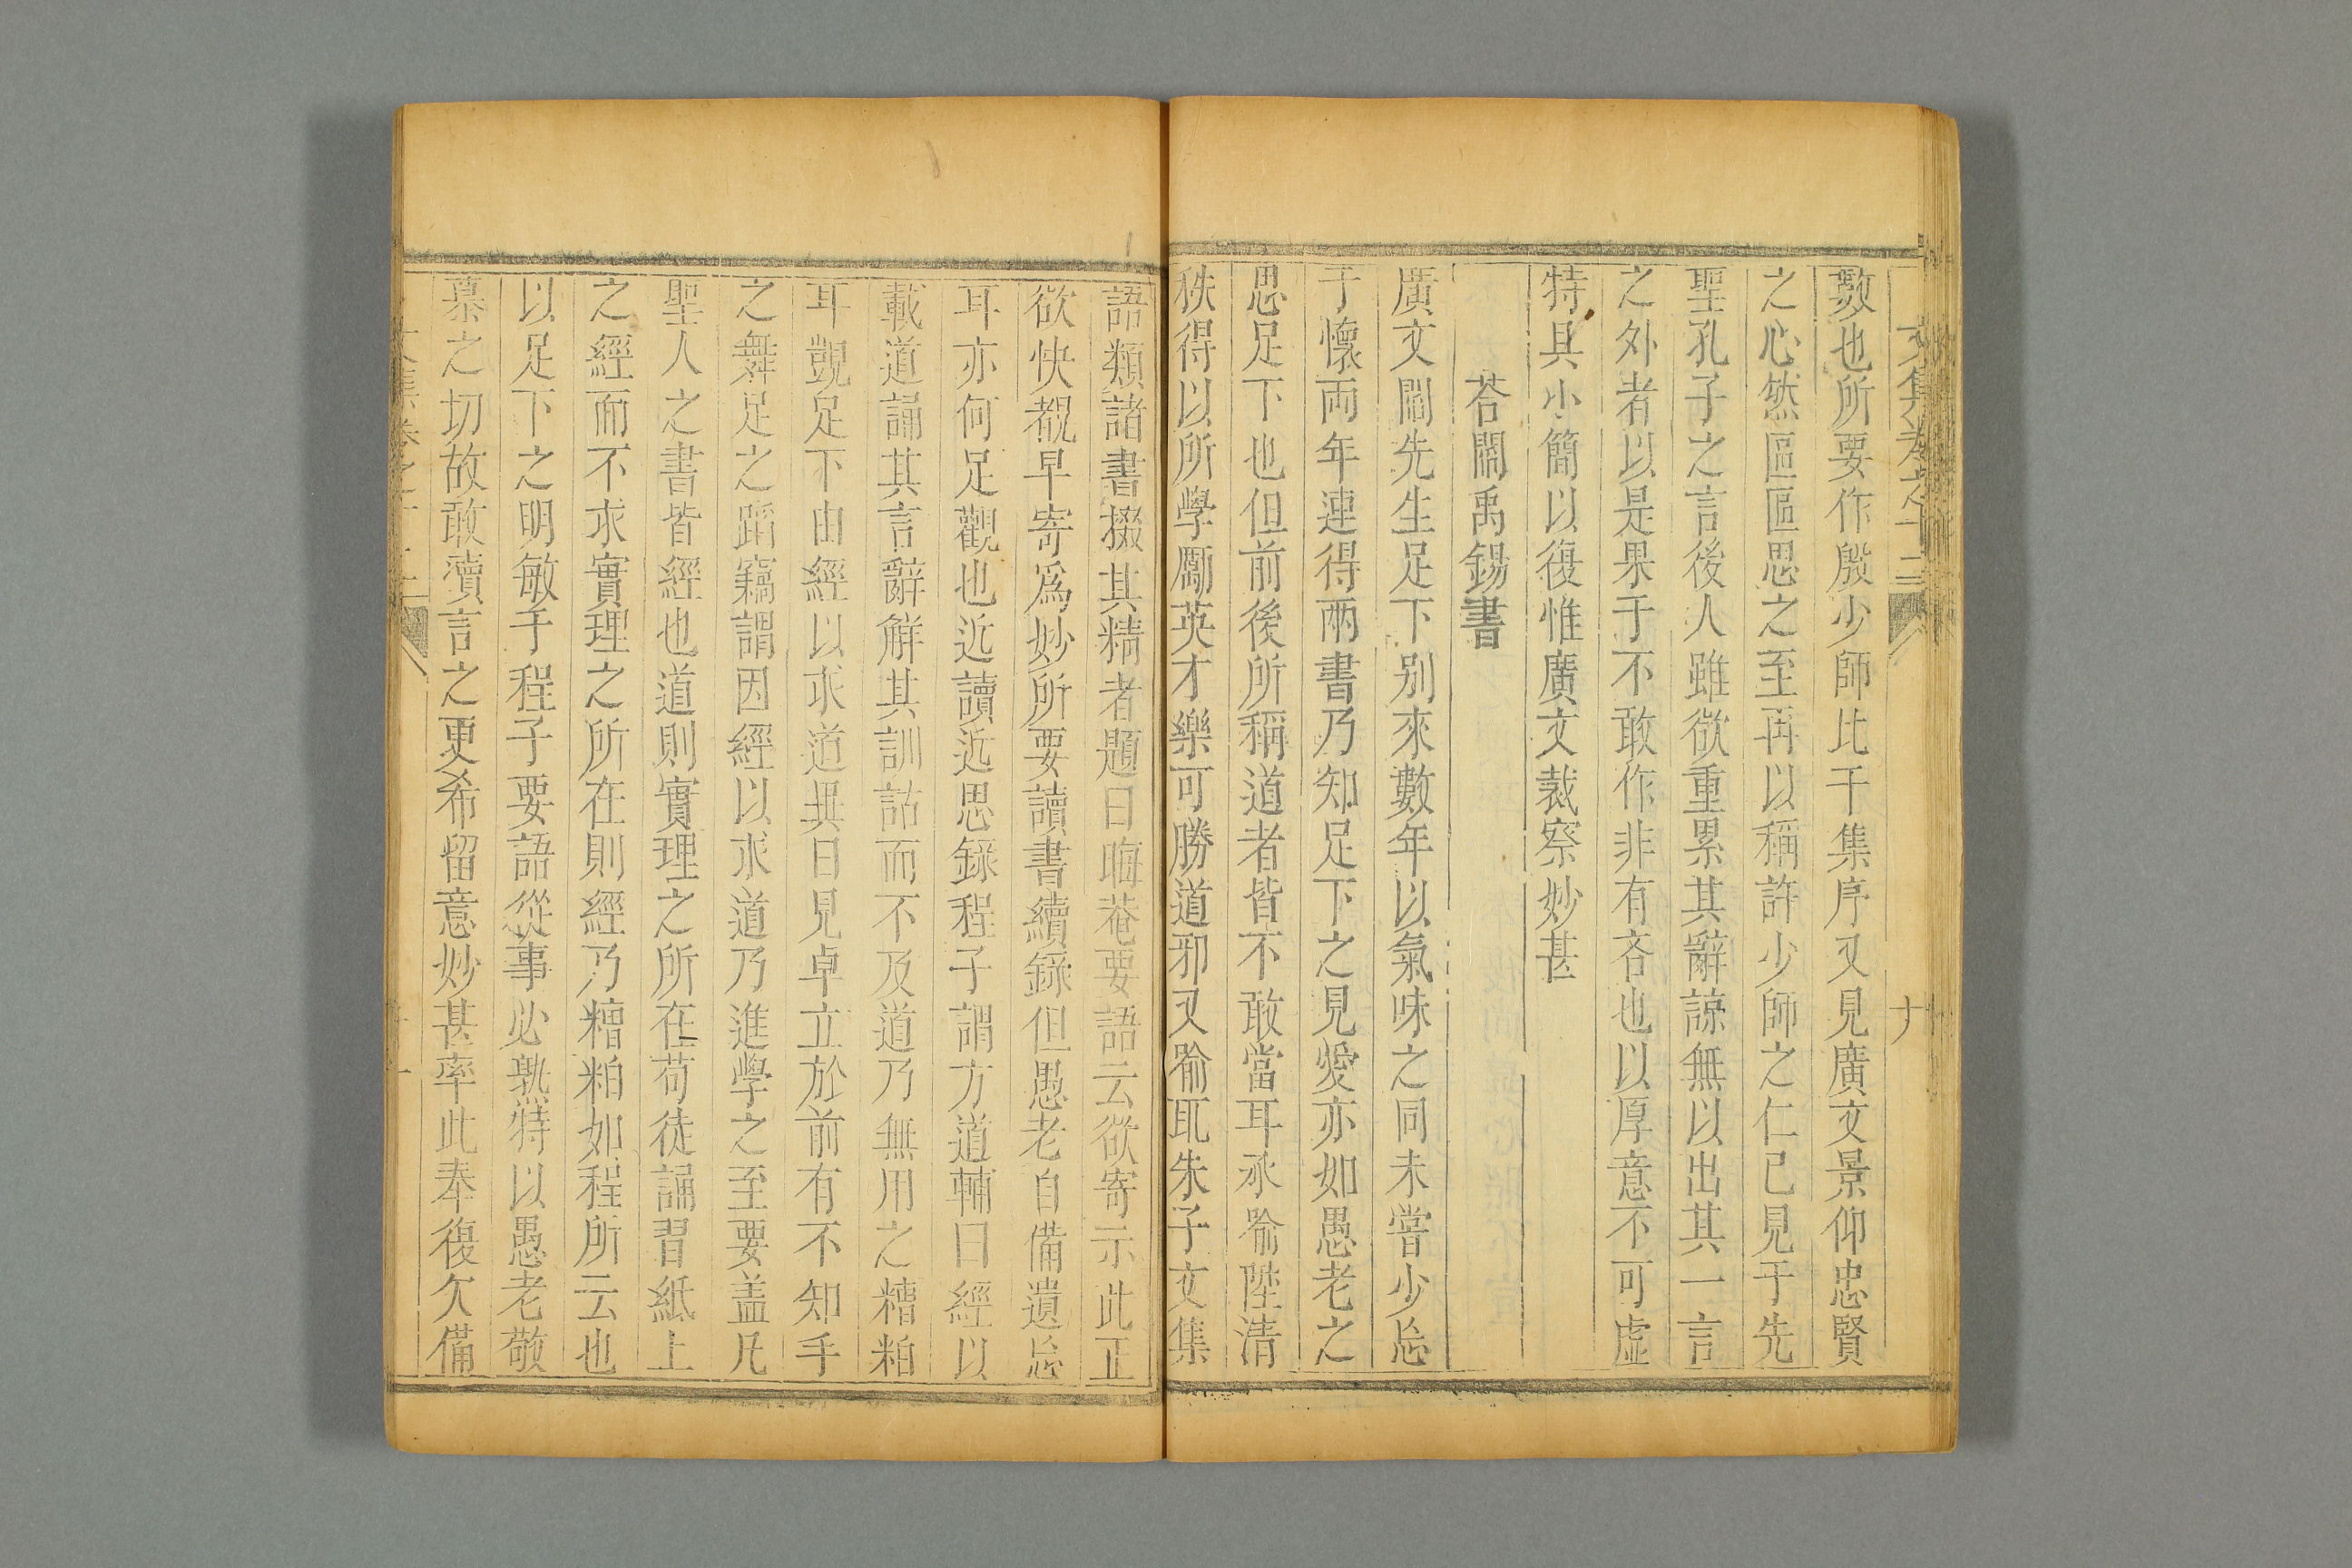 文集卷之十二 十
數也所要作殷少師比干集序又見廣文景仰忠賢
之心然區區思之至再以稱許少師之仁已見于先
聖孔子之言後人雖欲重累其辭諒無以出其一言
之外者以是果于不敢作非有吝也以厚意不可虛
特具小簡以復惟廣文裁察妙甚
荅閻禹錫書
廣文閻先生足下别來數年以氣味之同未嘗少忘
于懷两年連得兩書乃知足下之見愛亦如愚老之
思足下也但前後所稱道者皆不敢當耳承喻陞清
秩得以所學勵英才樂可勝道邪又喻取朱子文集
語類諸書掇其精者題曰晦菴要語云欲寄示此正
欲快覩早寄爲妙所要讀書續錄但愚老自備遺忘
耳亦何足觀也近讀近思錄程子謂方道輔曰經以
載道誦其言辭解其訓詁而不及道乃無用之糟粕
耳覬足下由經以求道異日見卓立於前有不知手
之舞足之蹈竊謂因經以求道乃進學之至要盖凡
聖人之書皆經也道則實理之所在苟徒誦習紙上
之經而不求實理之所在則經乃糟粕如程所云也
以足下之明敏于程子要語從事必熟特以愚老敬
慕之切故敢瀆言之更希留意妙甚率此奉復欠備
文集卷之十二